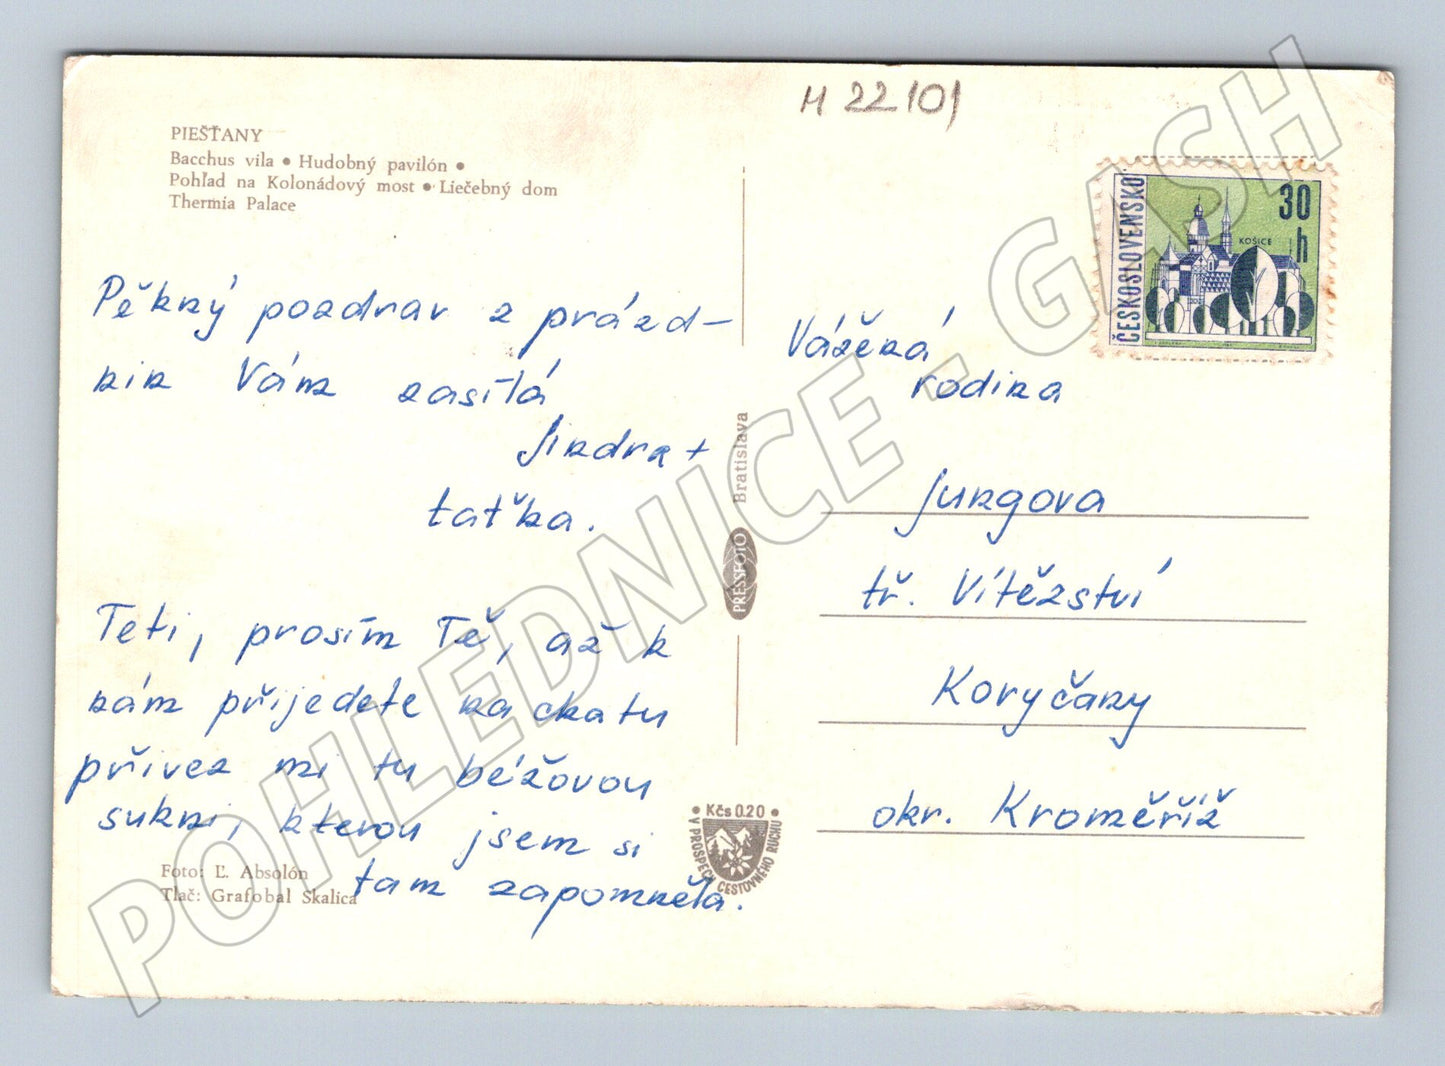 M 22101
PIEŠŤANY
Bacchus vila • Hudobný pavilón •
Pohľad na Kolonádový most • Liečebný dom
Thermia Palace
Pěkný pozdrav z prázd-
nin Vám zasílá
Jindra +
taťka.
Teti, prosím Tě, až k
nám přijedete na chatu
přivez mi tu béžovou
sukni, kterou jsem si
tam zapomněla.
Foto: Ľ. Absolón
Tlač: Grafobal Skalica
Bratislava
PRESSFOTO
• Kčs 0.20 •
V PROSPECH CESTOVNÉHO RUCHU
ČESKOSLOVENSKO
30 h
KOŠICE
Vážená
rodina
Jungova
tř. Vítězství
Koryčany
okr. Kroměříž
POHLEDNICE - GASH